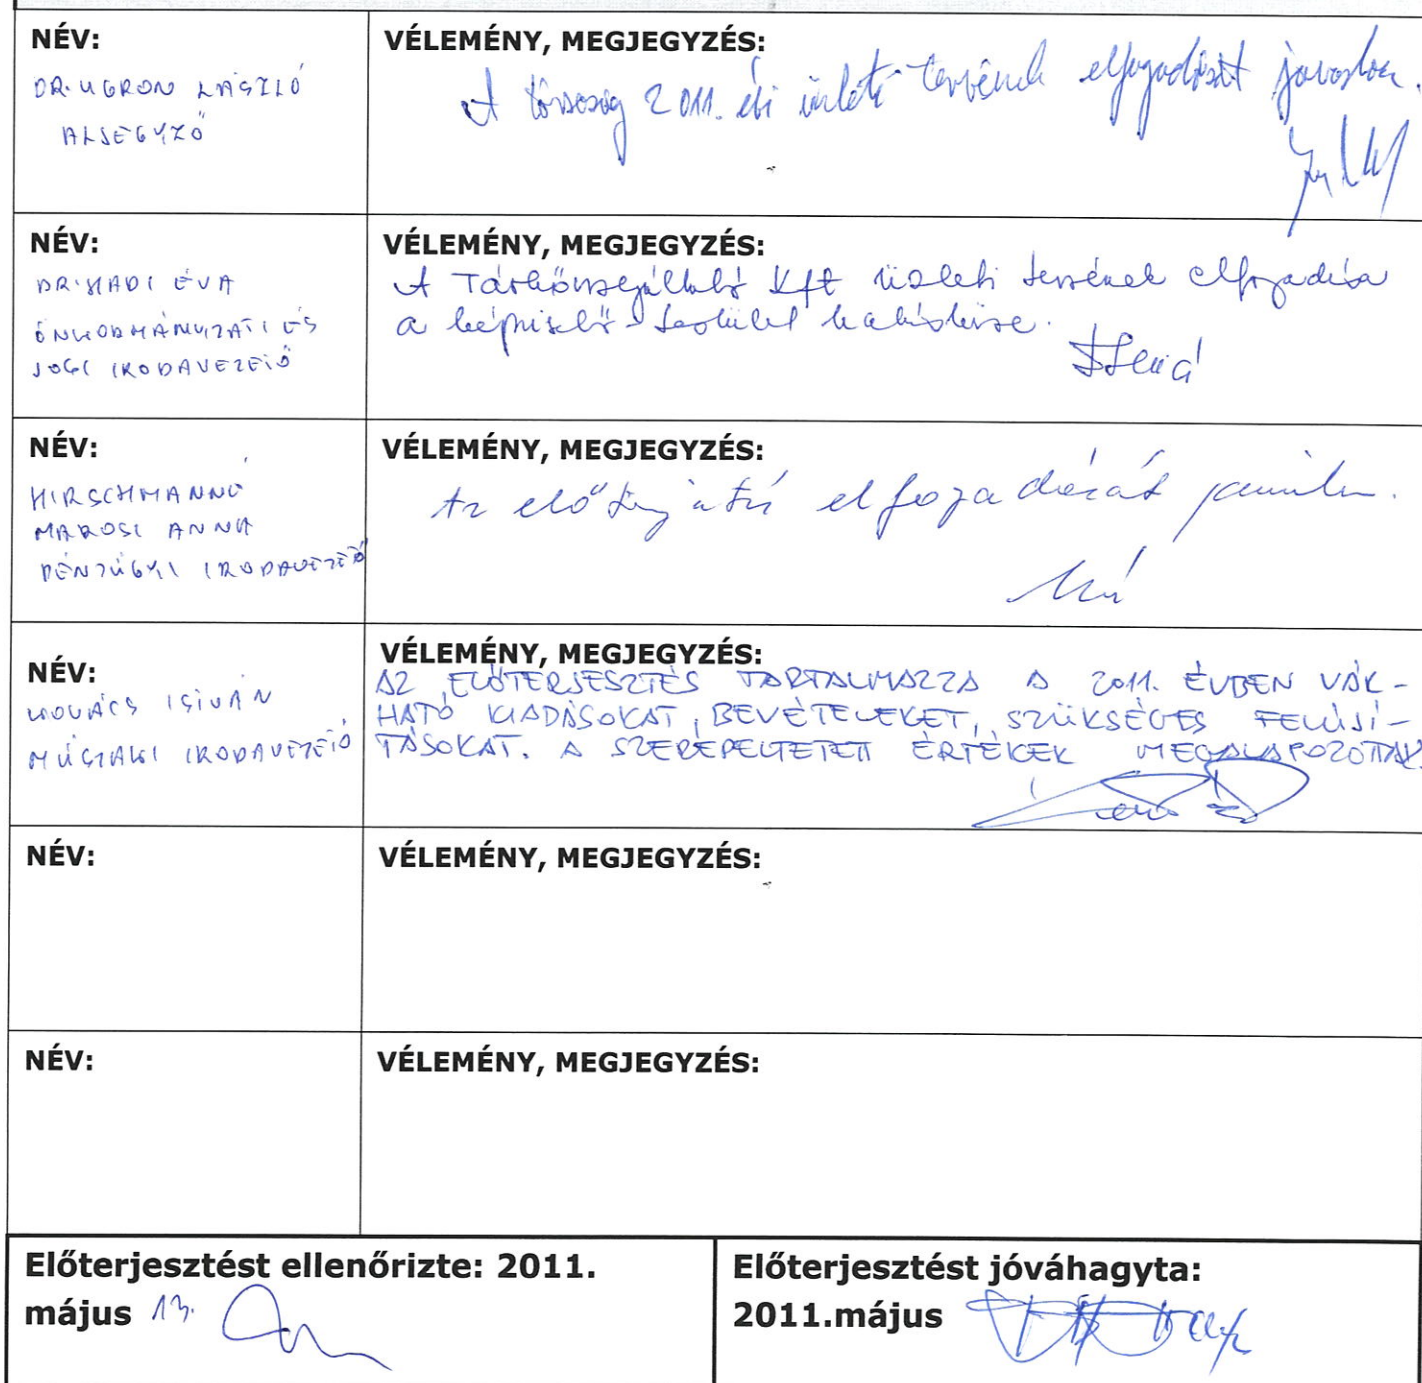 NÉV:
DR. UGRON LÁSZLÓ
ALJEGYZŐ
VÉLEMÉNY, MEGJEGYZÉS:
A társaság 2011. évi üzleti tervének elfogadását javaslom.
NÉV:
DR. HADI ÉVA
ÖNKORMÁNYZATI ÉS
JOGI IRODAVEZETŐ
VÉLEMÉNY, MEGJEGYZÉS:
A Távhőszolgáltató Kft üzleti tervének elfogadása
a képviselő-testület hatásköre.
NÉV:
HIRSCHMANNÉ
MAROSI ANNA
PÉNZÜGYI IRODAVEZETŐ
VÉLEMÉNY, MEGJEGYZÉS:
Az elfogadását
NÉV:
KOVÁCS ISTVÁN
MŰSZAKI IRODAVEZETŐ
VÉLEMÉNY, MEGJEGYZÉS:
AZ ELŐTERJESZTÉS TARTALMAZZA A 2011. ÉVBEN VÁR-
HATÓ KIADÁSOKAT, BEVÉTELEKET, SZÜKSÉGES FELÚJÍ-
TÁSOKAT. A SZEREPELTETETT ÉRTÉKEK MEGALAPOZOTTAK.
NÉV:
VÉLEMÉNY, MEGJEGYZÉS:
NÉV:
VÉLEMÉNY, MEGJEGYZÉS:
Előterjesztést ellenőrizte: 2011.
május 13.
Előterjesztést jóváhagyta:
2011.május